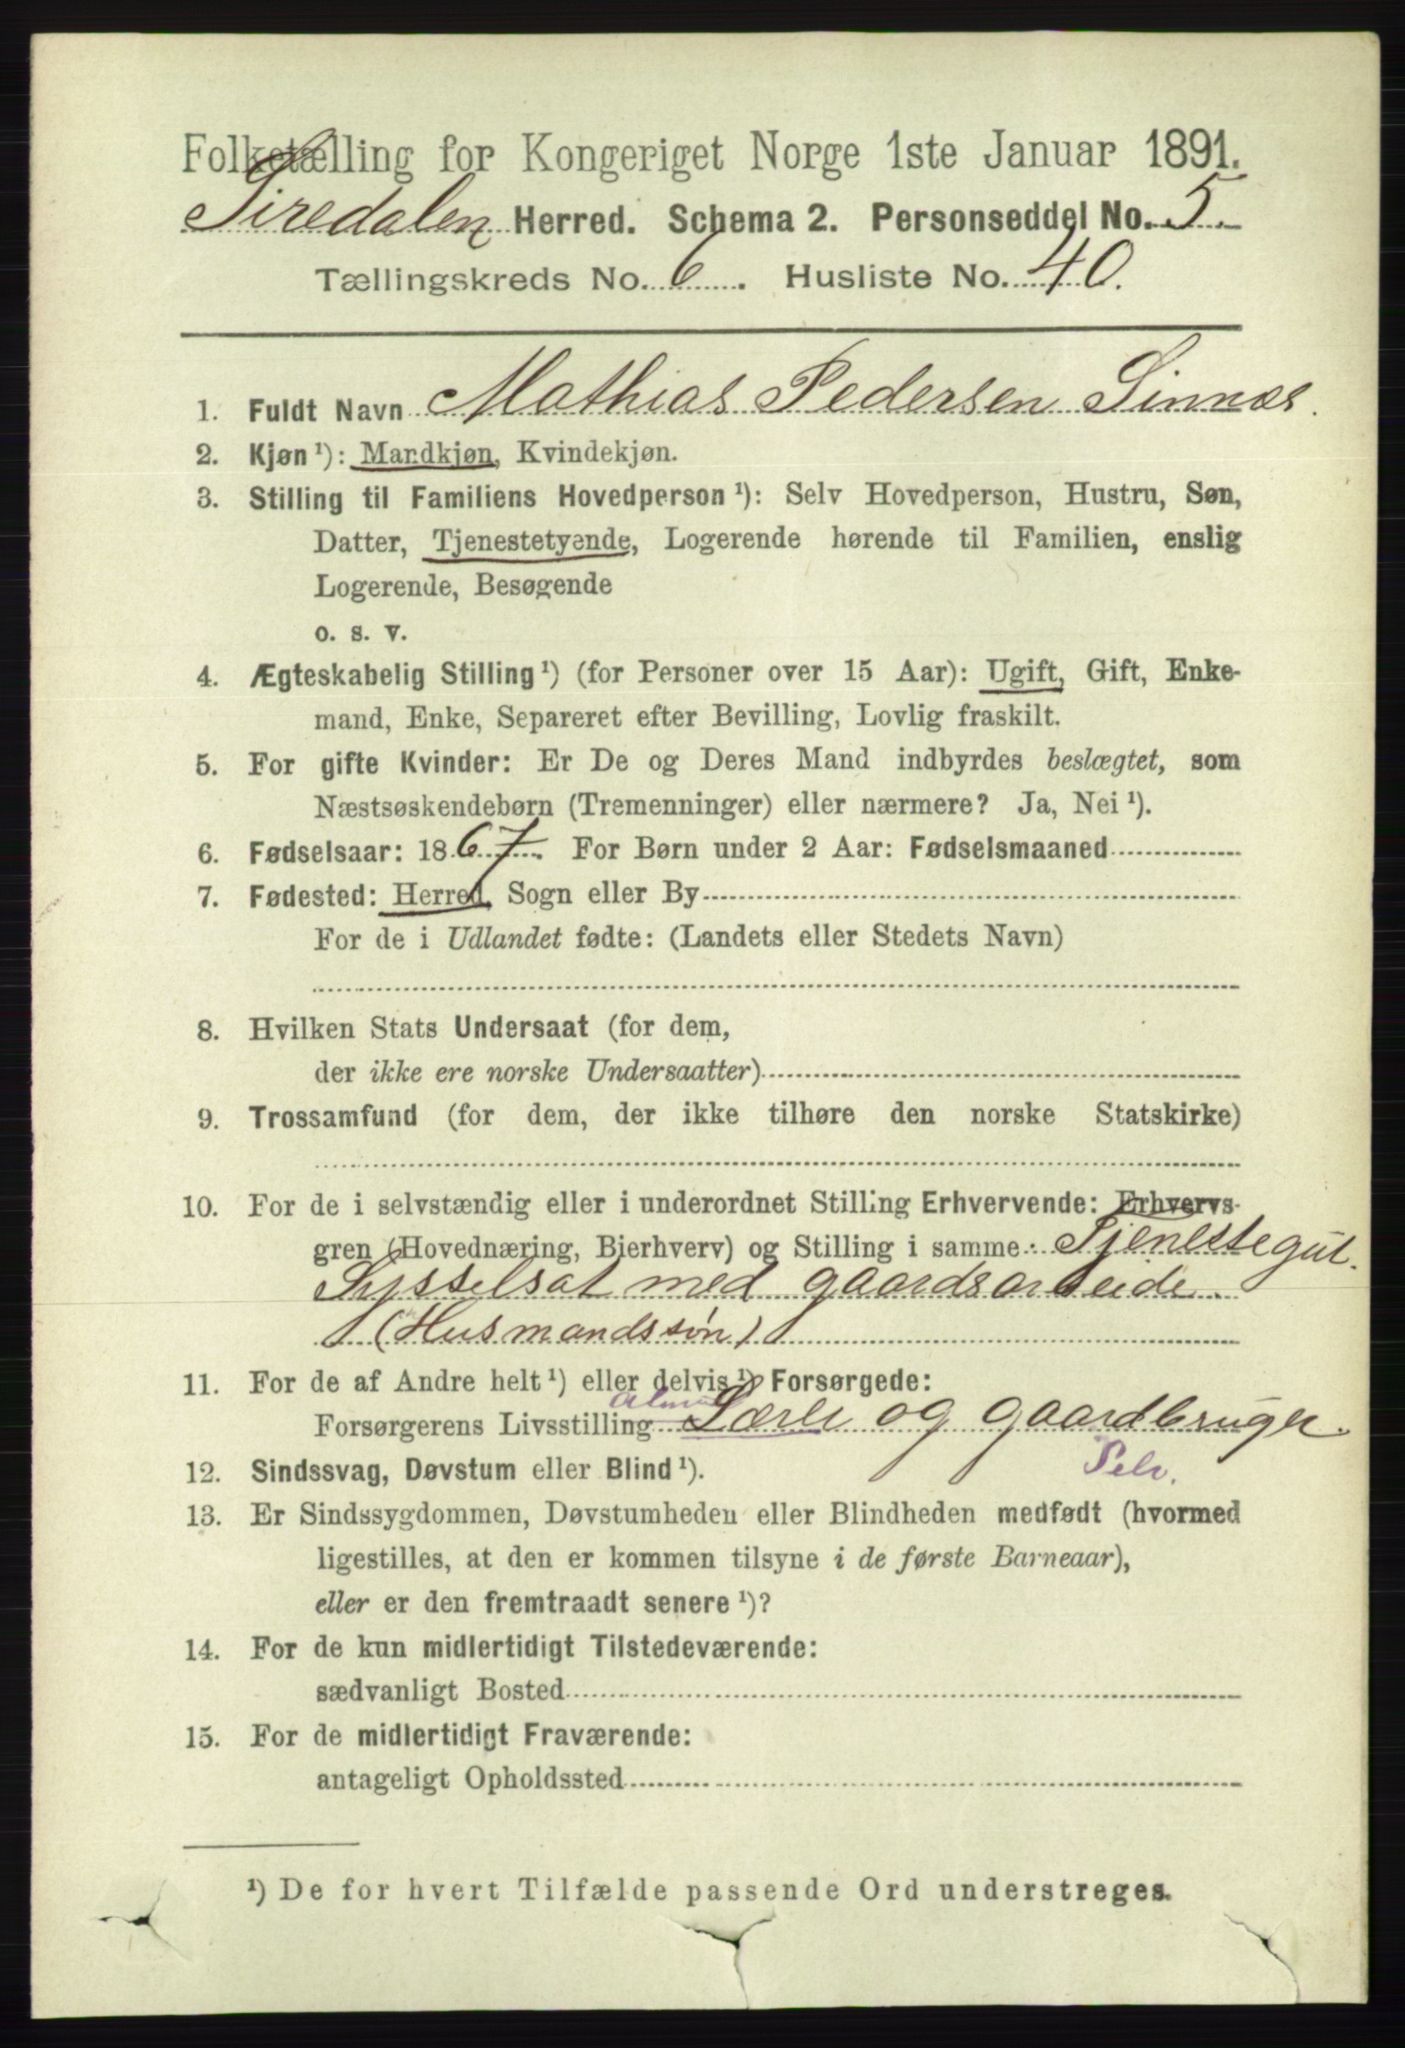 Folketælling for Kongeriget Norge 1ste Januar 1891.
Siredalen Herred. Schema 2. Personseddel No. 5.
Tællingskreds No. 6. Husliste No. 40.
1. Fuldt Navn Mathias Pedersen Sinnes.
2. Kjøn ¹): Mandkjøn, Kvindekjøn.
3. Stilling til Familiens Hovedperson ¹): Selv Hovedperson, Hustru, Søn,
Datter, Tjenestetyende, Logerende hørende til Familien, enslig
Logerende, Besøgende
o. s. v.
4. Ægteskabelig Stilling ¹) (for Personer over 15 Aar): Ugift, Gift, Enke-
mand, Enke, Separeret efter Bevilling, Lovlig fraskilt.
5. For gifte Kvinder: Er De og Deres Mand indbyrdes beslægtet, som
Næstsøskendebørn (Tremenninger) eller nærmere? Ja, Nei ¹).
6. Fødselsaar: 1867. For Børn under 2 Aar: Fødselsmaaned
7. Fødested: Herred, Sogn eller By
For de i Udlandet fødte: (Landets eller Stedets Navn)
8. Hvilken Stats Undersaat (for dem,
der ikke ere norske Undersaatter)
9. Trossamfund (for dem, der ikke tilhøre den norske Statskirke)
10. For de i selvstændig eller i underordnet Stilling Erhvervende: Erhvervs-
gren (Hovednæring, Bierhverv) og Stilling i samme. Tjenestegut.
Sysselsat med gaardsarbeide.
(Husmandssøn)
11. For de af Andre helt ¹) eller delvis ¹) Forsørgede:
Forsørgerens Livsstilling Lærer og gaardbruger.
12. Sindssvag, Døvstum eller Blind ¹). Selv.
13. Er Sindssygdommen, Døvstumheden eller Blindheden medfødt (hvormed
ligestilles, at den er kommen tilsyne i de første Barneaar),
eller er den fremtraadt senere ¹)?
14. For de kun midlertidigt Tilstedeværende:
sædvanligt Bosted
15. For de midlertidigt Fraværende:
antageligt Opholdssted
¹) De for hvert Tilfælde passende Ord understreges.